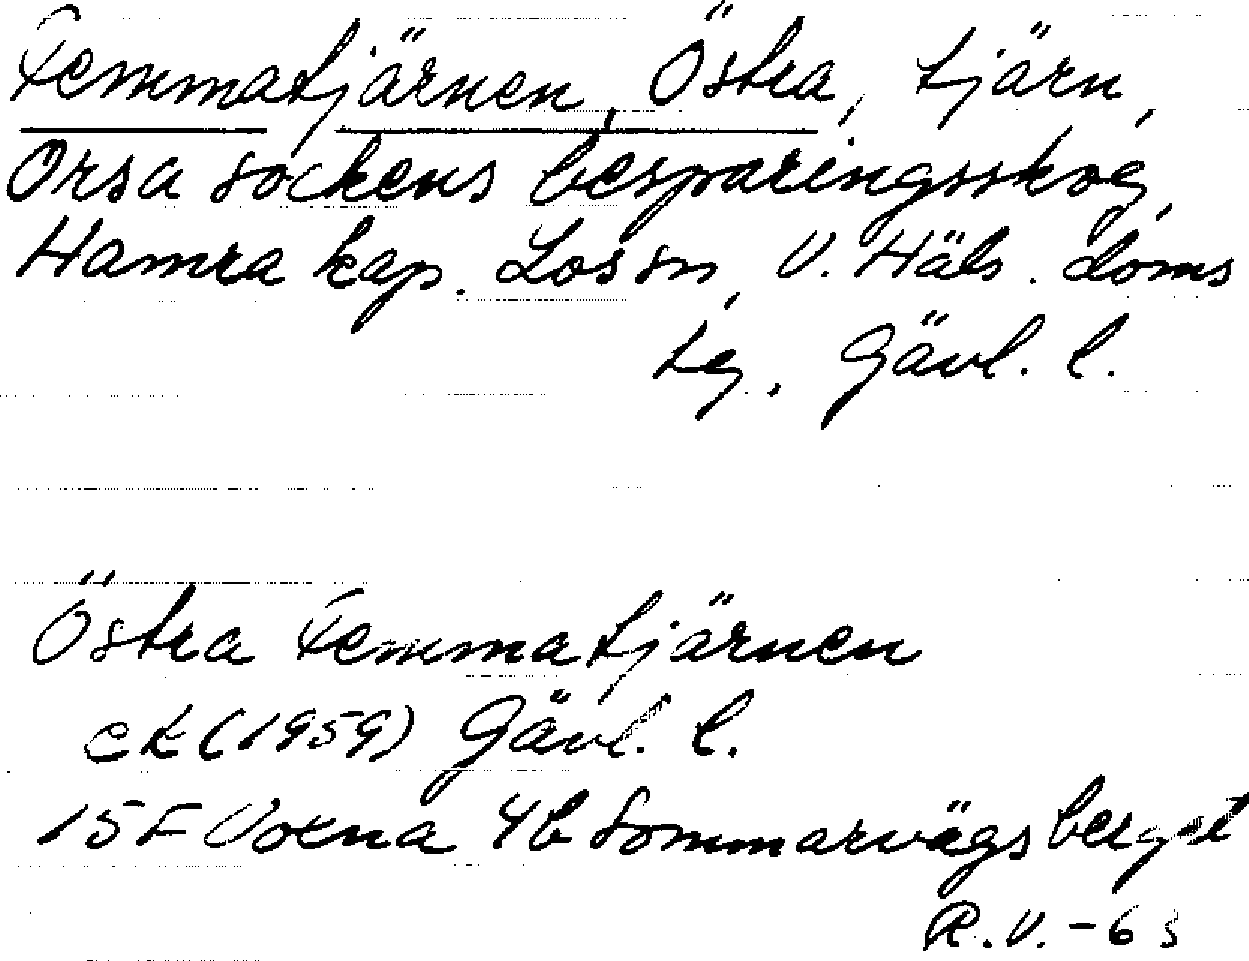 Femmatjärnen, Östra, tjärn,
Orsa sockens besparingsskog,
Hamra kap. Los sn, V. Häls. doms
tg, Gävl. l.
Östra Femmatjärnen
ek (1959) Gävl. l.
15F Voxna 4b Sommarvägsberget
R.V. -63